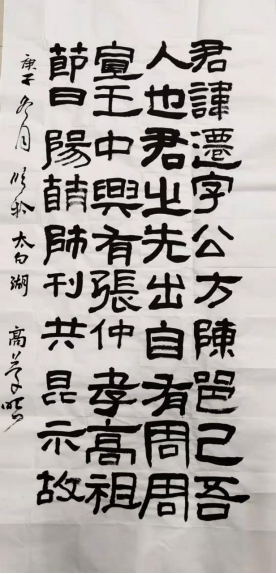 君諱遷字公方陳邑己吾
人也君之先出自有周周
宣王中興有張仲孝高祖
節日陽師刊共昆示故
庚子冬月 太白湖 高